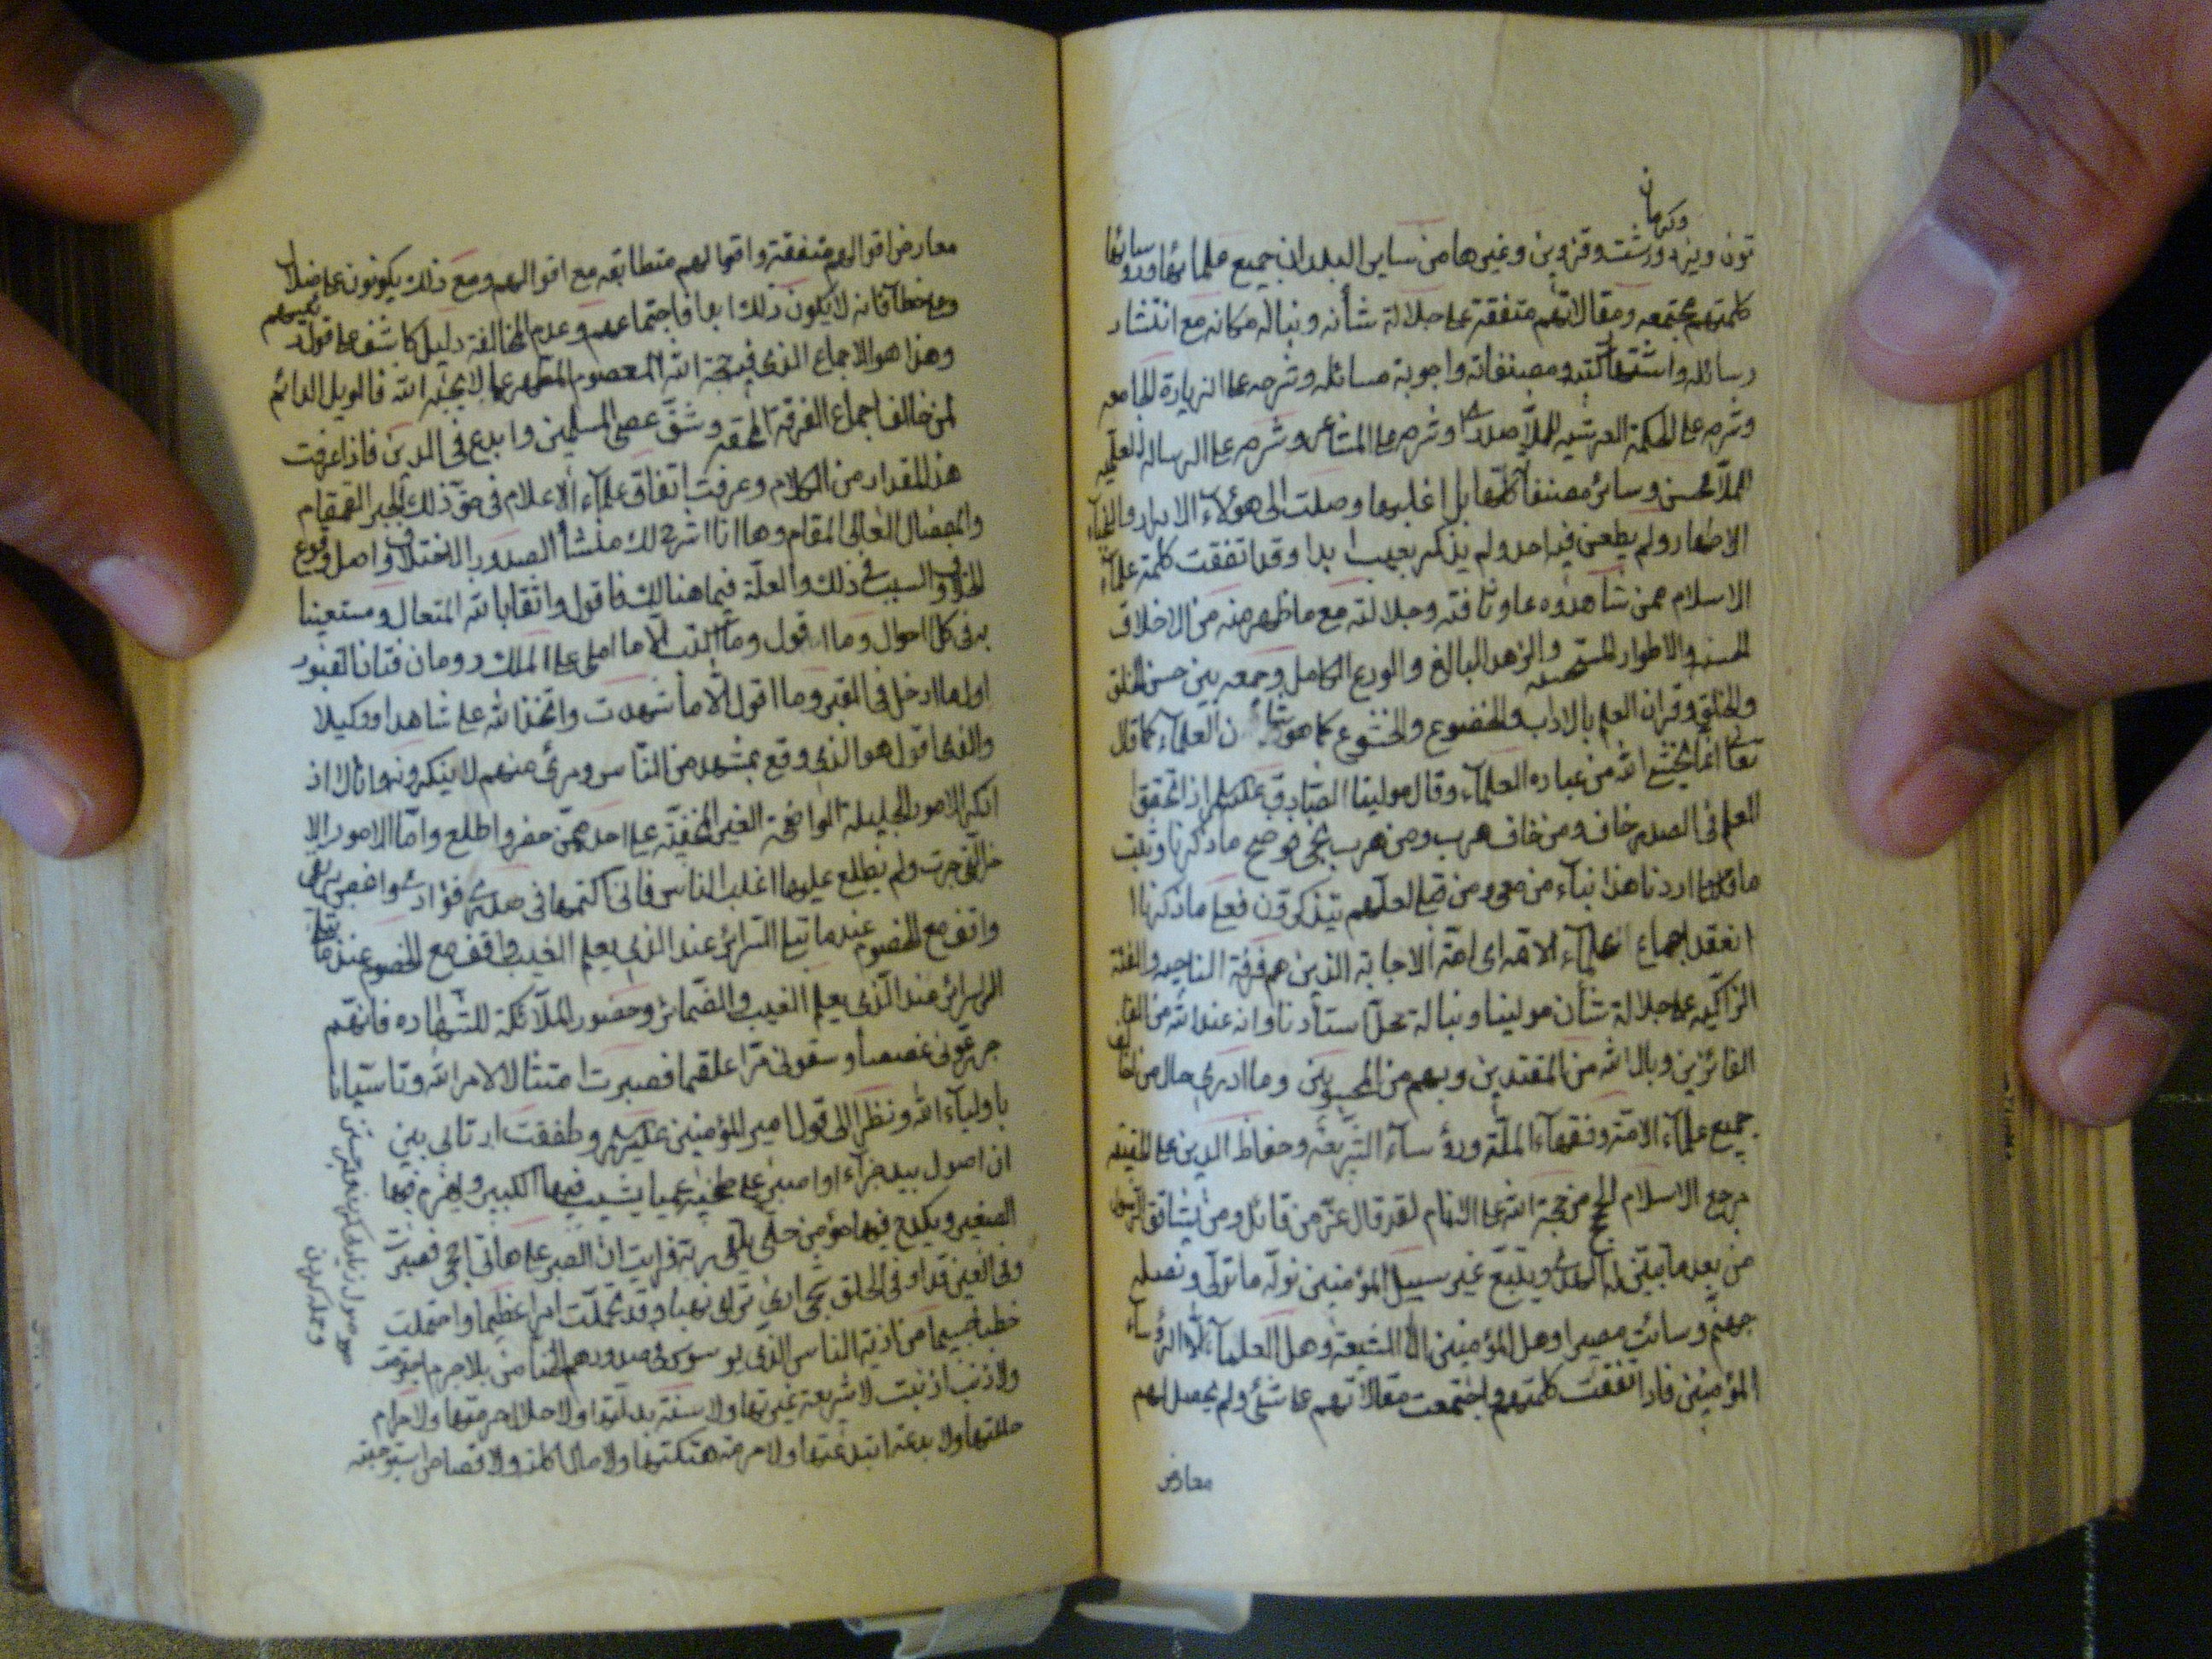 وكرمان
تون ويزد ورشت وقزوين وغيرها من ساير البلدان جميع علمائها ورؤسائها
كلمتهم مجتمعه ومقالاتهم متفقة على جلالة شأنه ونبالة مكانه مع انتشار
رسائله واشتهار كتبه ومصنفاته واجوبة مسائله وشرحه على الزيارة الجامعه
وشرحه على الحكمة العرشيه للملا صدرا وشرحه على المشاعر وشرحه على الرساله العلميه
للملا محسن وسائر مصنفاته كلها بل اغلبها وصلت الى هؤلاء الابرار والنجباء
الاطهار ولم يطعن فيه احد ولم يذكره بعيب ابدا وقد اتفقت كلمة علماء
الاسلام ممن شاهدوه على وثاقته وجلالته مع ما ظهر منه من الاخلاق
الحسنه والاطوار المستحسنه والزهد البالغ والورع الكامل وجمعه بين حسن الخلق
والخلق وقران العلم بالاداب والخضوع والخشوع كما هو شأن العلماء كما قال
تعالى انما يخشى الله من عباده العلماء وقال مولينا الصادق عليه السلم اذا تحقق
العلم في الصدر خاف ومن خاف هرب ومن هرب نجى فوضح ما ذكرنا وثبت
ما اردنا هذا نبأ من معي ومن قبلي لعلهم يتذكرون فعلى ما ذكرنا
انعقد اجماع علماء الامه اى امة الاجابة الذين هم فرقة الناجيه والفئة
الزاكيه على جلالة شأن مولينا ونبالة محل استادنا وانه عند الله من
الفائزين وبال الله من المقتدين وبهم من المحبوبين وما ادري حال من خالف
جميع علماء الامة وفقهاء الملة ورؤساء الشريعة وحفاظ الدين على الحقيقه
مرجع الاسلام الحجج من حجة الله على الانام لقد قال عز من قائل ومن يشاقق الرسول
من بعد ما تبين له الهدى ويتبع غير سبيل المؤمنين نوله ما تولى ونصله
جهنم وسائت مصيرا وهل المؤمنين الا الشيعة وهل العلماء الا الرؤساء
المؤمنين فاذا اتفقت كلمتهم واجتمعت مقالاتهم على شئ ولم يحصل لهم
معارض
معارض اقوالهم متفقة واقوالهم متطابقه مع اقوالهم ومع ذلك يكونون على ضلال
وعلى خطأ فانه لا يكون ذلك ابدا فاجتماعهم وعدم المخالفة دليل كاشف على قول
وهذا هو الاجماع الذي فيه حجة الله المعصوم المطهر عما لا يحبه الله فالويل الدائم
لمن خالف اجماع الفرقة المحقه وشق عصى المسلمين وابدع في الدين فاذا عرفت
هذا المقدار من الكلام وعرفت اتفاق علماء الاعلام في حق ذلك الحبر القمقام
والمفضال العالي المقام وها انا اشرح لك منشأ الصدور الاختلاف واصل وقوع
الخلاف والسبب في ذلك والعلة فيما هنالك فاقول واثقا بالله المتعال ومستعينا
به في كل احوال وما اقول وما اكتب الا ما املى على الملك رومان فتان القبور
اول ما ادخل في القبر وما اقول الا ما شهدت واتخذ الله على شاهدا ووكيلا
والذي اقول هو الذي وقع بمشهد من الناس ومرئى منهم لا ينكرونه وانا لا اذ
انكر الامور الجليلة الواضحة الغير المخفية على احد ممن حضر واطلع واما الامور الا
خر التي جرت ولم يطلع عليها اغلب الناس فاني اكتمها في صدري وفؤادي
واقف مع الخصوم عند ما تبلى السرائر عند الذي يعلم الغيب واقف مع الخصوم عند ما تبلى
السرائر عند الذي يعلم الغيب والضمائر وحضور الملائكة للشهاده فانهم
جرعوني غصصا وسقوني مرا علقما فصبرت امتثالا لامر الله وتاسيا
باولياء الله ونظرا الى قول امير المؤمنين عليه السلم وطفقت ارتاى بين
ان اصول بيد جذاء او اصبر على طخية عمياء يشيب فيها الكبير ويهرم فيها
الصغير ويكدح فيها مؤمن حتى يلقى ربه فرايت ان الصبر على هاتى احجى فصبرت
وفي العين قذى وفي الحلق شجى ارى تراثي نهبا وقد تحملت امرا عظيما واحتملت
خطبا جسيما من اذية الناس الذي يوسوس في صدورهم الخناس بلا جرم اجترمت
ولا ذنب اذنبت لا شريعة غيرتها ولا سنة بدلتها ولا حلال حرمتها ولا حرام
حللتها ولا بدعة ابتدعتها ولا حرمة هتكتها ولا مال اكلته ولا قصاص استوجبته